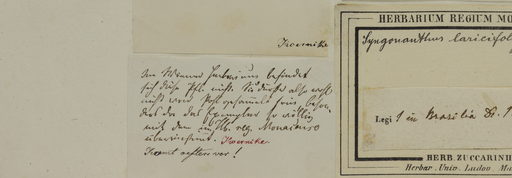 Koernicke
Im Wiener Herbarium befindet
sich diese Pfl. nicht. Sie dürfte also wohl
nicht von Pohl gesammelt sein, beson
ders da das Exemplar so völlig
mit dem im Hb. reg. Monacense
übereinstimmt. Koernicke.
Kommt öfters vor!
HERBARIUM REGIUM MO
Syngonanthus laricifol
Legi 1 in Brasilia
HERB. ZUCCARINI
Herbar. Univ. Ludov. Ma